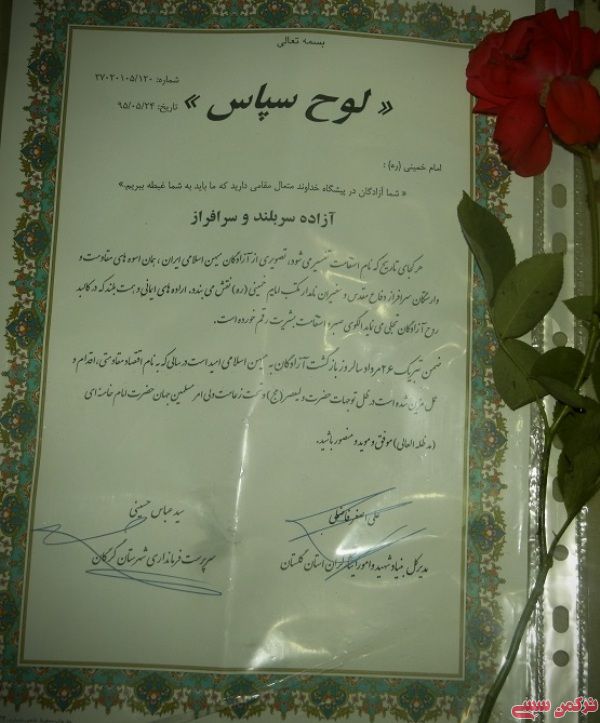 بسمه تعالی
شماره: ۲۷۰۲۰۱۰۵/۱۲۰
« لوح سپاس »
تاریخ: ۹۵/۰۵/۲۴
امام خمینی (ره) :
« شما آزادگان در پیشگاه خداوند متعال مقامی دارید که ما باید به شما غبطه ببریم.»
آزاده سربلند و سرافراز
هر کجای تاریخ که نام استقامت تفسیر می شود، تصویری از آزادگان میهن اسلامی ایران ، همان اسوه های مقاومت و
وارستگان سرافراز دفاع مقدس و سفیران نامدار مکتب امام خمینی (ره) نقش می بندد. اراده های ایمانی و همت بلند که در کالبد
روح آزادگان تجلی می نماید الگوی صبر و استقامت بشریت رقم خورده است.
ضمن تبریک ۲۶ مرداد سالروز بازگشت آزادگان به میهن اسلامی امید است در سالی که به نام اقتصاد مقاومتی، اقدام و
عمل مزین شده است در ظل توجهات حضرت ولیعصر (عج) و تحت زعامت ولی امر مسلمین جهان حضرت امام خامنه ای
(مد ظله العالی) موفق و موید و منصور باشید.
علی اصغر فاضلی
سید عباس حسینی
مدیر کل بنیاد شهید و امور ایثارگران استان گلستان
سرپرست فرمانداری شهرستان گرگان
ترکمن سسی